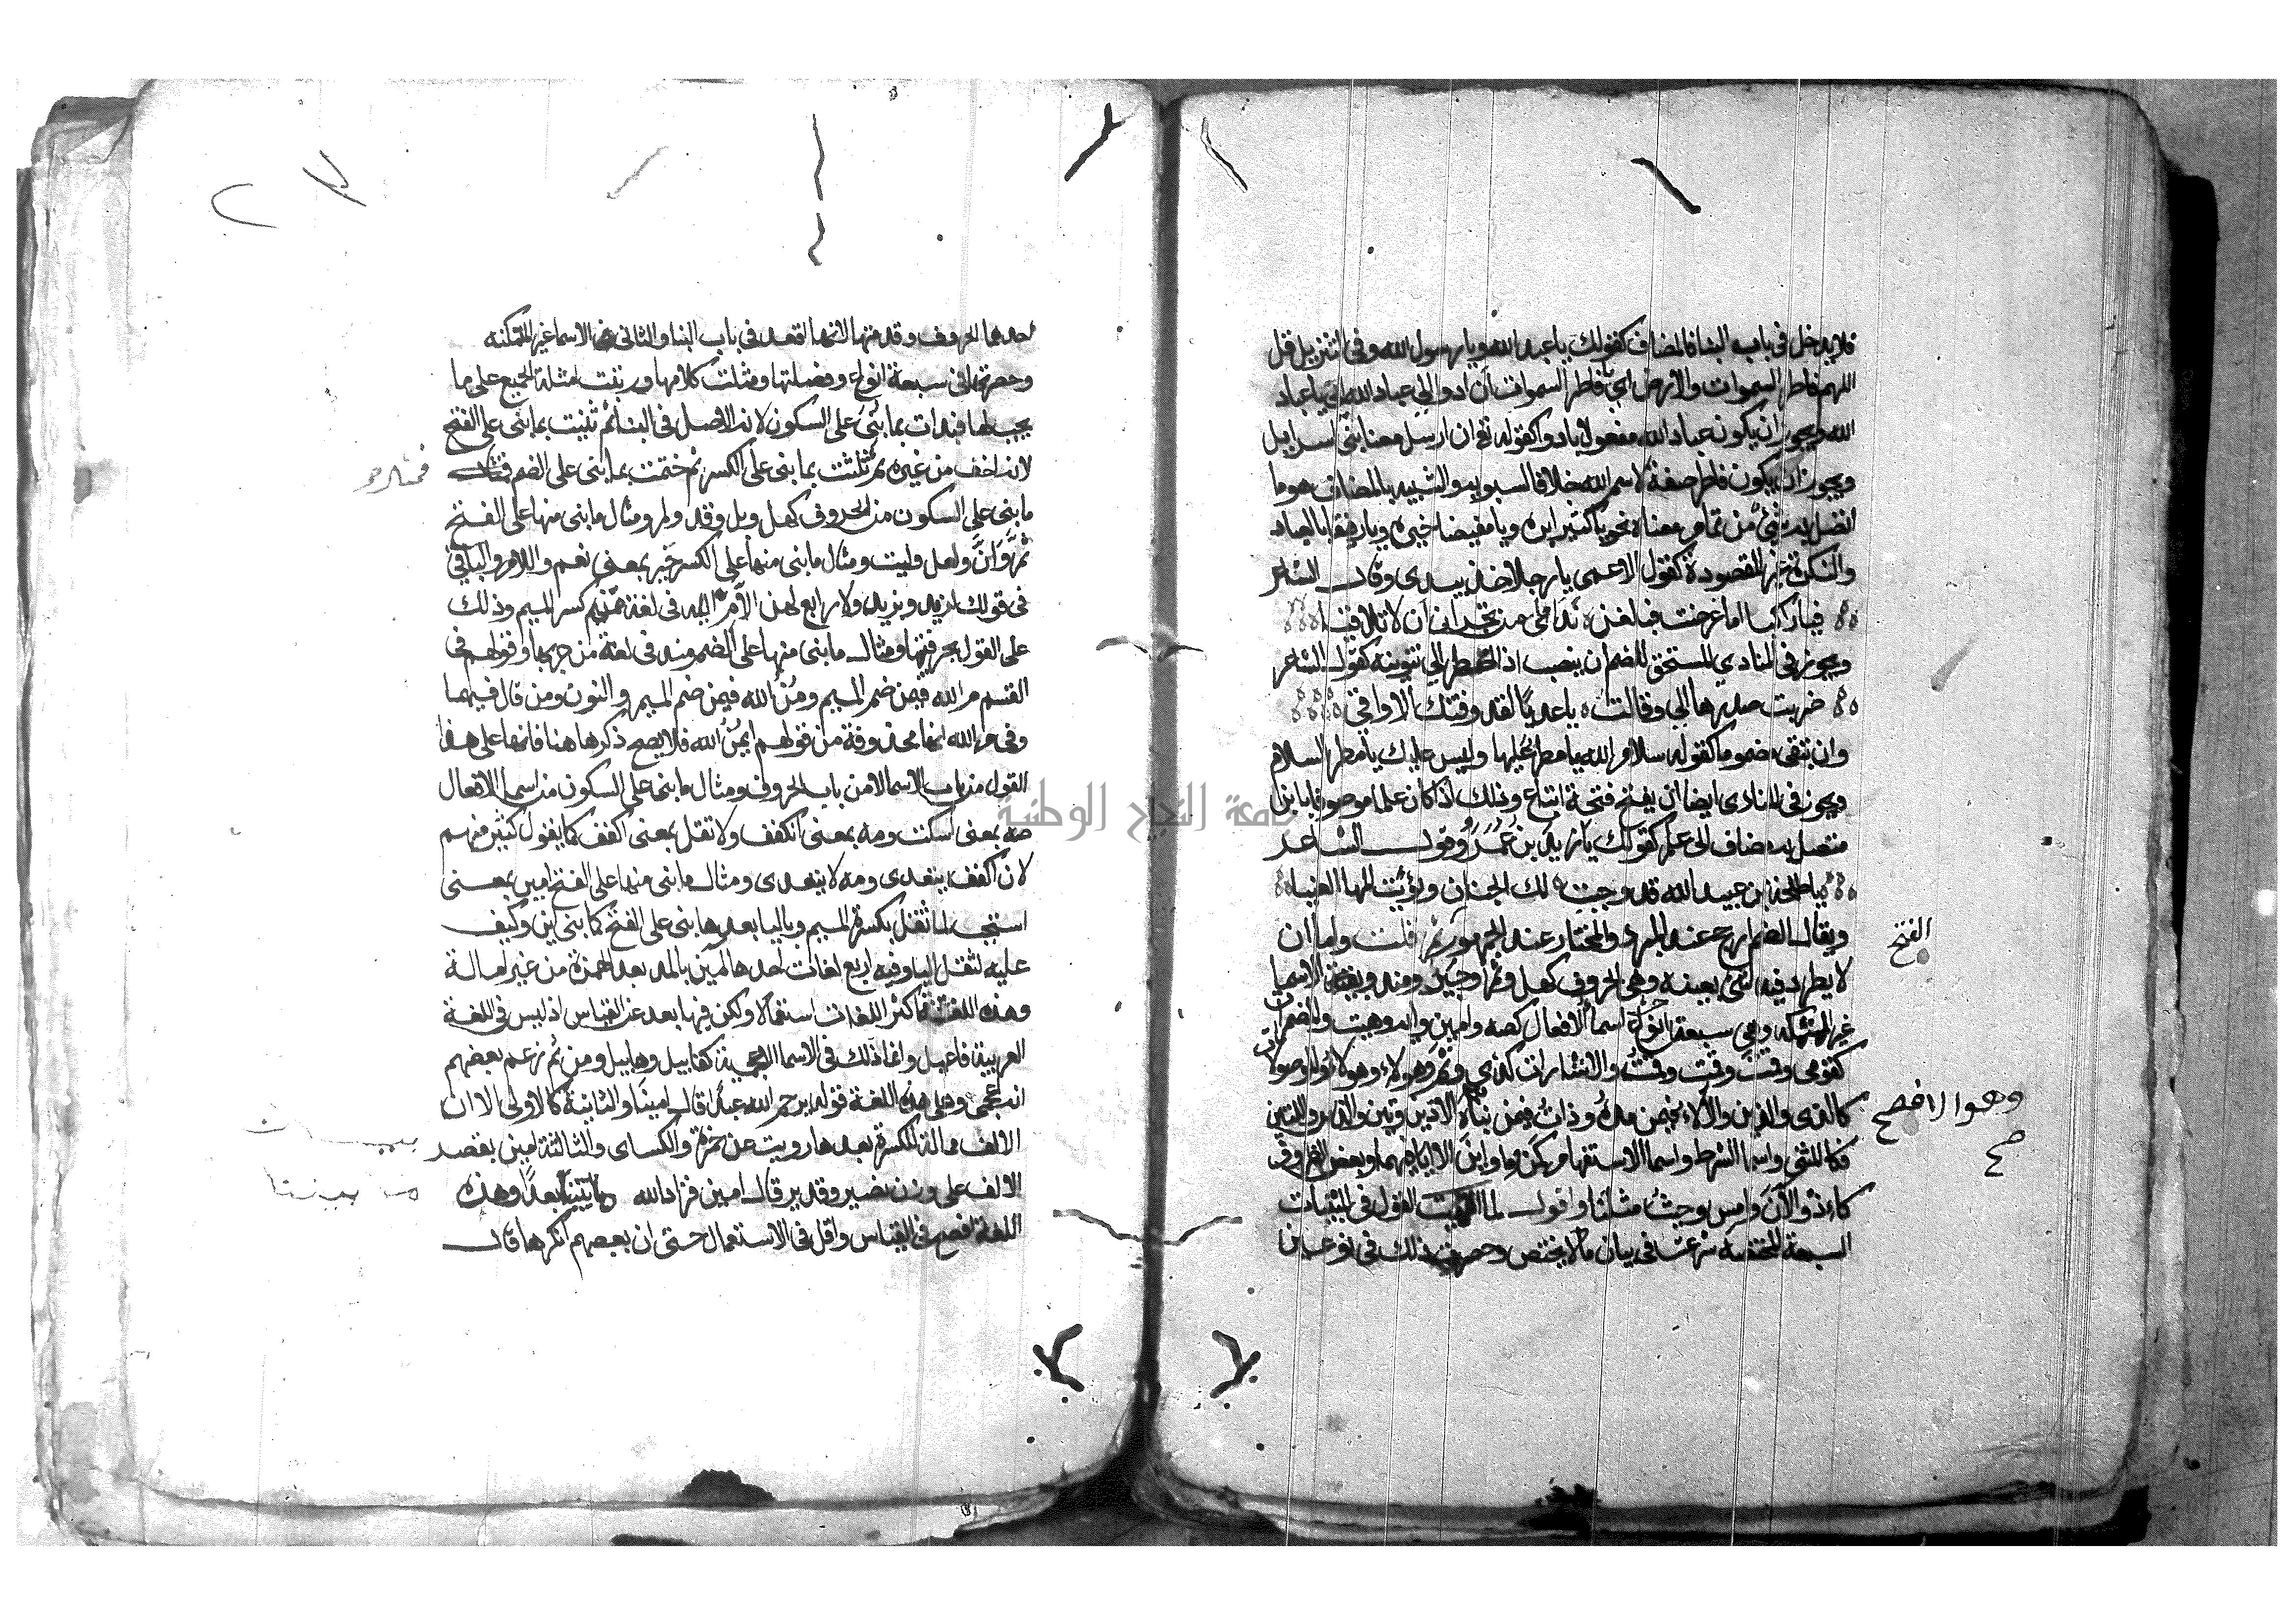 فلا يدخل في باب البنا فالمضاف كقولك يا عبد الله ويا رسول الله وفي التنزيل قل
اللهم فاطر السموات والارض اي يا فاطر السموات ان ادوا الي عباد الله اي يا عباد
الله ويجوز ان يكون عباد الله مفعولا بادوا كقوله تع ان ارسل معنا بني اسرايل
ويجوز ان يكون فاطر صفة لاسم الله خلافا لسيبويه والشبيه بالمضاف هو ما
اتصل به شئ من تمام معناه نحو يا كثيرا بره ويا مفيضا خيره ويا رفيقا بالعباد
والنكرة غير المقصودة كقول الاعمى يا رجلا خذ بيدي وقال الشاعر
فيا راكبا اما عرضت فبلغن نداماي من نجران ان لا تلاقيا
ويجوز في المنادي المستحق للضم ان ينصب اذا اضطر الي تنوينه كقول الشاعر
ضربت صدرها الي وقالت يا عديا لقد وقتك الاواقي
وان يبقي مضموما كقوله سلام الله يا مطر عليها وليس عليك يا مطر السلام
ويجوز في المنادي ايضا ان يفتح فتحة اتباع وذلك اذا كان علما موصوفا بابن
متصل به مضاف الى علم كقولك يا زيد بن عمرو وقول الشاعر
يا طلحة بن عبيد الله قد وجبت لك الجنان وبوئت المها العينا
ويقال الضم ارجح عند المبرد والمختار عند الجمهور ثم قلت واما ان
الفتح
لا يطرد فيه شئ بعينه وهي الحروف كهل وثم وجير ومنذ وبقية الاسما
غير المتمكنه وهي سبعة انواع اسما الافعال كصه وامين وايه وهيت والمضمرات
كقومي وقمت وقمت وقمت والاشارات كذي وثم وهولاء وهولاء والموصولات
كالذي والذين والالاء فيمن مده وذات فيمن بناه الا ذين وتين والذين واللتين
وهو الافصح
صح
فكالمثنى واسما الشرط واسما الاستفهام كمن وما واين الا ايا فيهما وبعض الظروف
كاذ والآن وامس وحيث مثلثا واقول لما انهيت القول في المبنيات
السبعة المختصة شرعت في بيان ما لا يختص وحصرت ذلك في نوعين
احدهما الحروف وقدمتها لانها اقعد في باب البنا والثاني الاسما غير المتمكنه
وحصرتها في سبعة انواع وفصلتها ومثلت كلا منها ورتبت امثلة الجميع على ما
يجب لها فبدات بما بني على السكون لانه الاصل في البنا ثم ثنيت بما بني على الفتح
لانه اخف من غيره ثم ثلثت بما بني على الكسر ثم ختمت بما بني على الضم فمثال
ما بني على السكون من الحروف كهل وبل وقد ولم ومثال ما بني منها على الفتح
ثم وان ولعل وليت ومثال ما بني منها على الكسر جير بمعنى نعم واللام والبا في
في قولك لزيد وبزيد ولا رابع لهن الا م الله في لغة من كسر الميم وذلك
على القول بحرفيتها ومثال ما بني منها على الضم منذ في لغة من جر بها وقولهم في
القسم م الله فيمن ضم الميم ومن الله فيمن ضم الميم والنون ومن قال فيهما
وفي م الله انها محذوفة من قولهم ايمن الله فلا يصح ذكرها هنا فانها على هذا
القول من باب الاسما لا من باب الحروف ومثال ما بني على السكون من اسما الافعال
صه بمعنى اسكت ومه بمعنى انكفف ولا تقل بمعنى اكفف كما يقول كثير منهم
لان اكفف يتعدى ومه لا يتعدى ومثال ما بني منها على الفتح امين بمعنى
استجب لما ثقل بكسرة الميم وباليا بعدها بني على الفتح كما بني اين وكيف
عليه لثقل اليا وفيه اربع لغات احدها آمين بالمد بعد الهمزة من غير امالة
وهذه اللغة اكثر اللغات استعمالا ولكن فيها بعد عن القياس اذ ليس في اللغة
العربية فاعيل وانما ذلك في الاسما الاعجمية كقابيل وهابيل ومن ثم زعم بعضهم
انه عجمي وعلى هذه اللغة قوله يرحم الله عبدا قال امينا والثانية كالاولى الا ان
الالف ممالة للكسرة بعدها رويت عن حمزة والكساى والثالثة امين بقصر
الالف على وزن نصير وقدير قال امين فزاد الله ما بيننا بعدا وهذه
ما بيننا
اللغة افصح في القياس واقل في الاستعمال حتى ان بعضهم انكرها قال
جامعة النجاح الوطنية